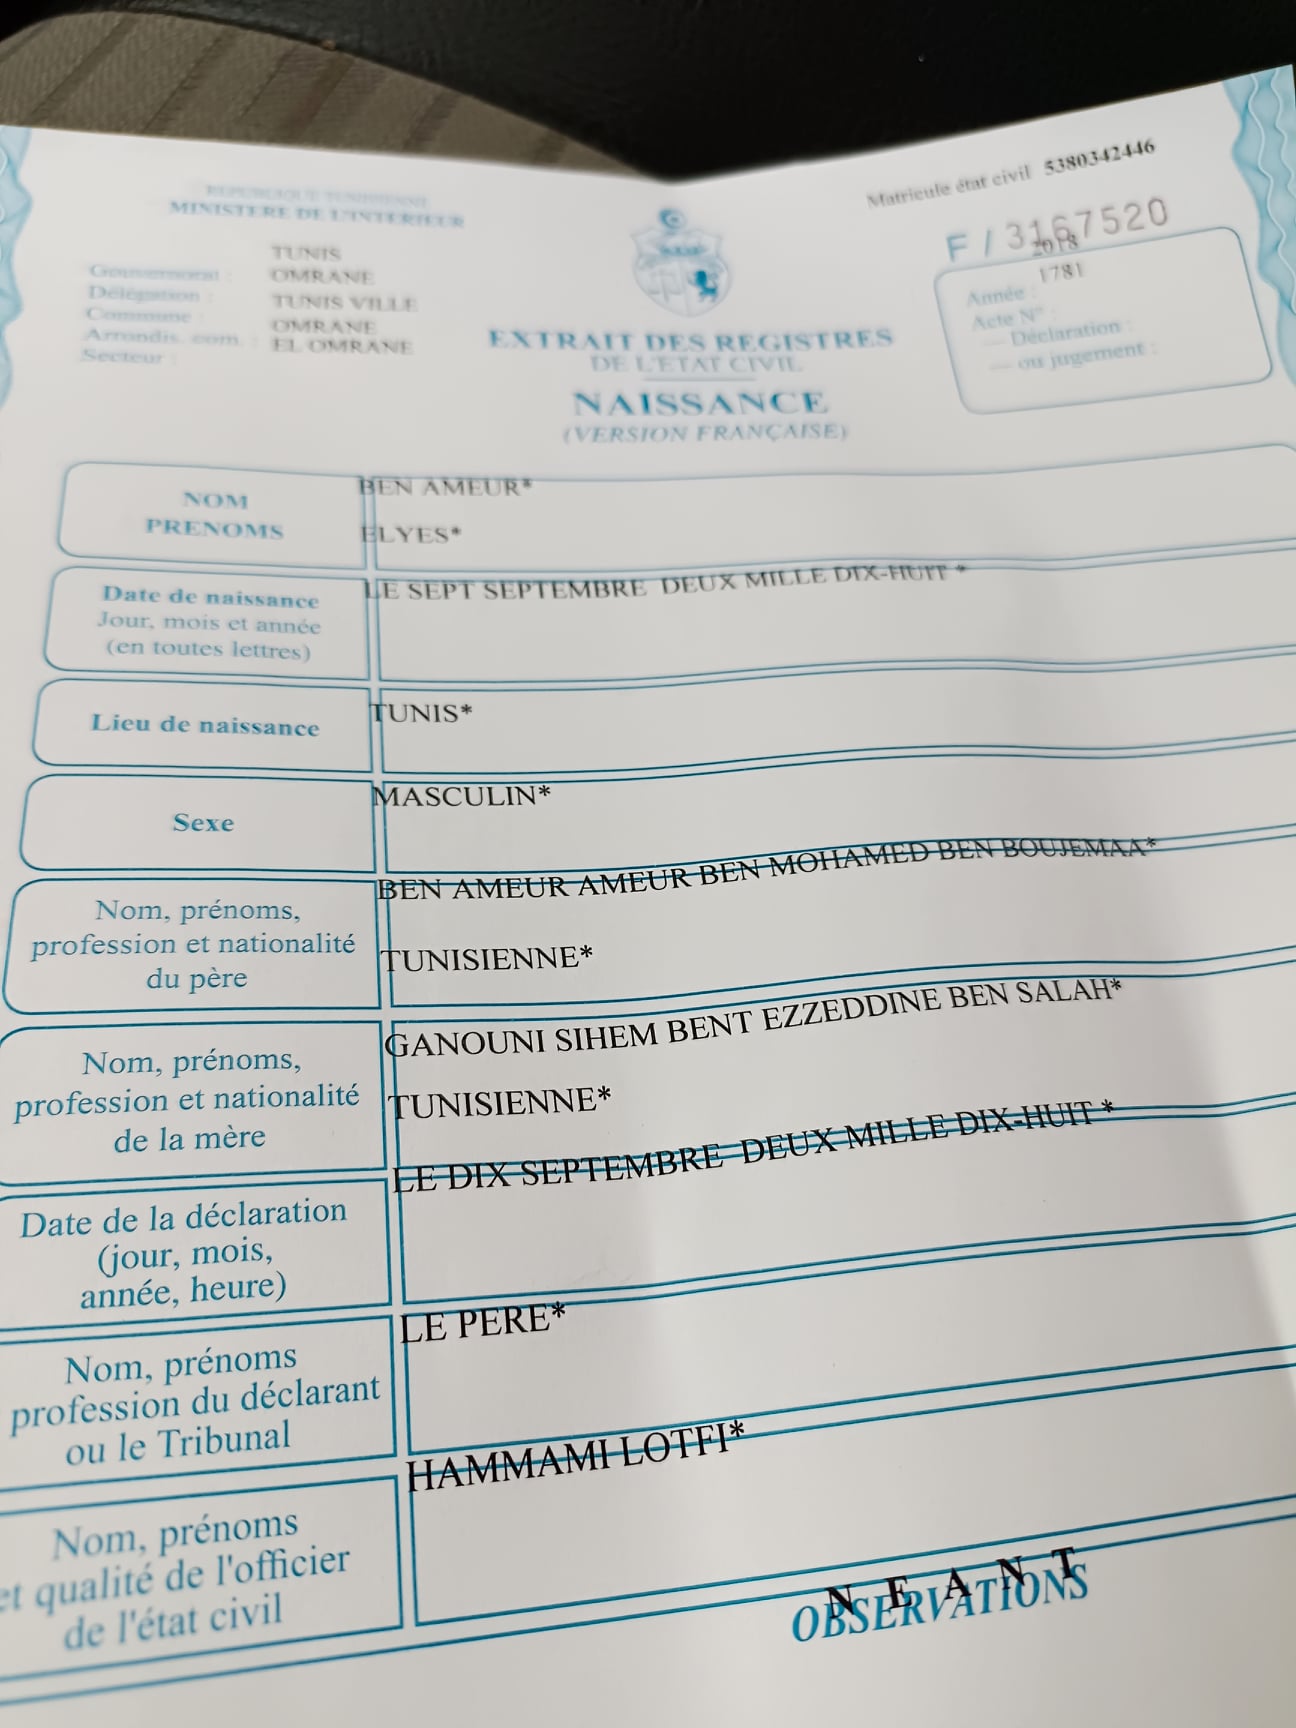 REPUBLIQUE TUNISIENNE
MINISTERE DE L'INTERIEUR
Gouvernorat : TUNIS
Délégation : OMRANE
Commune : TUNIS VILLE
Arrondis. com. : OMRANE
Secteur : EL OMRANE
Matricule état civil 5380342446
F / 3167520
2018
1781
Année :
Acte N° :
— Déclaration :
— ou jugement :
EXTRAIT DES REGISTRES
DE L'ETAT CIVIL
NAISSANCE
(VERSION FRANÇAISE)
NOM
PRENOMS
BEN AMEUR*
ELYES*
Date de naissance
Jour, mois et année
(en toutes lettres)
LE SEPT SEPTEMBRE DEUX MILLE DIX-HUIT *
Lieu de naissance
TUNIS*
Sexe
MASCULIN*
Nom, prénoms,
profession et nationalité
du père
BEN AMEUR AMEUR BEN MOHAMED BEN BOUJEMAA*
TUNISIENNE*
Nom, prénoms,
profession et nationalité
de la mère
GANOUNI SIHEM BENT EZZEDDINE BEN SALAH*
TUNISIENNE*
Date de la déclaration
(jour, mois,
année, heure)
LE DIX SEPTEMBRE DEUX MILLE DIX-HUIT *
Nom, prénoms
profession du déclarant
ou le Tribunal
LE PERE*
Nom, prénoms
et qualité de l'officier
de l'état civil
HAMMAMI LOTFI*
N E A N T
OBSERVATIONS